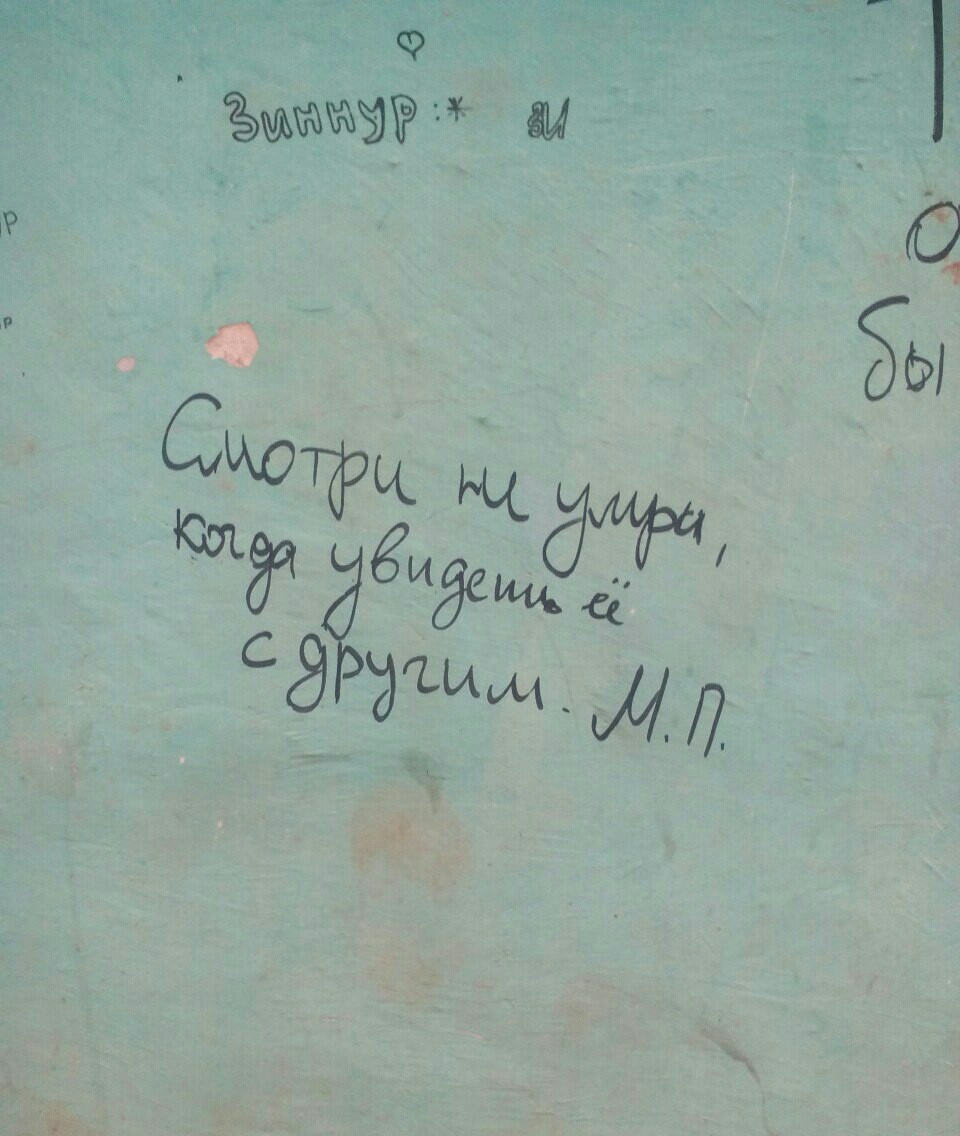 Зиннур :*
Смотри не умри,
когда увидешь её
с другим. М.П.
бы